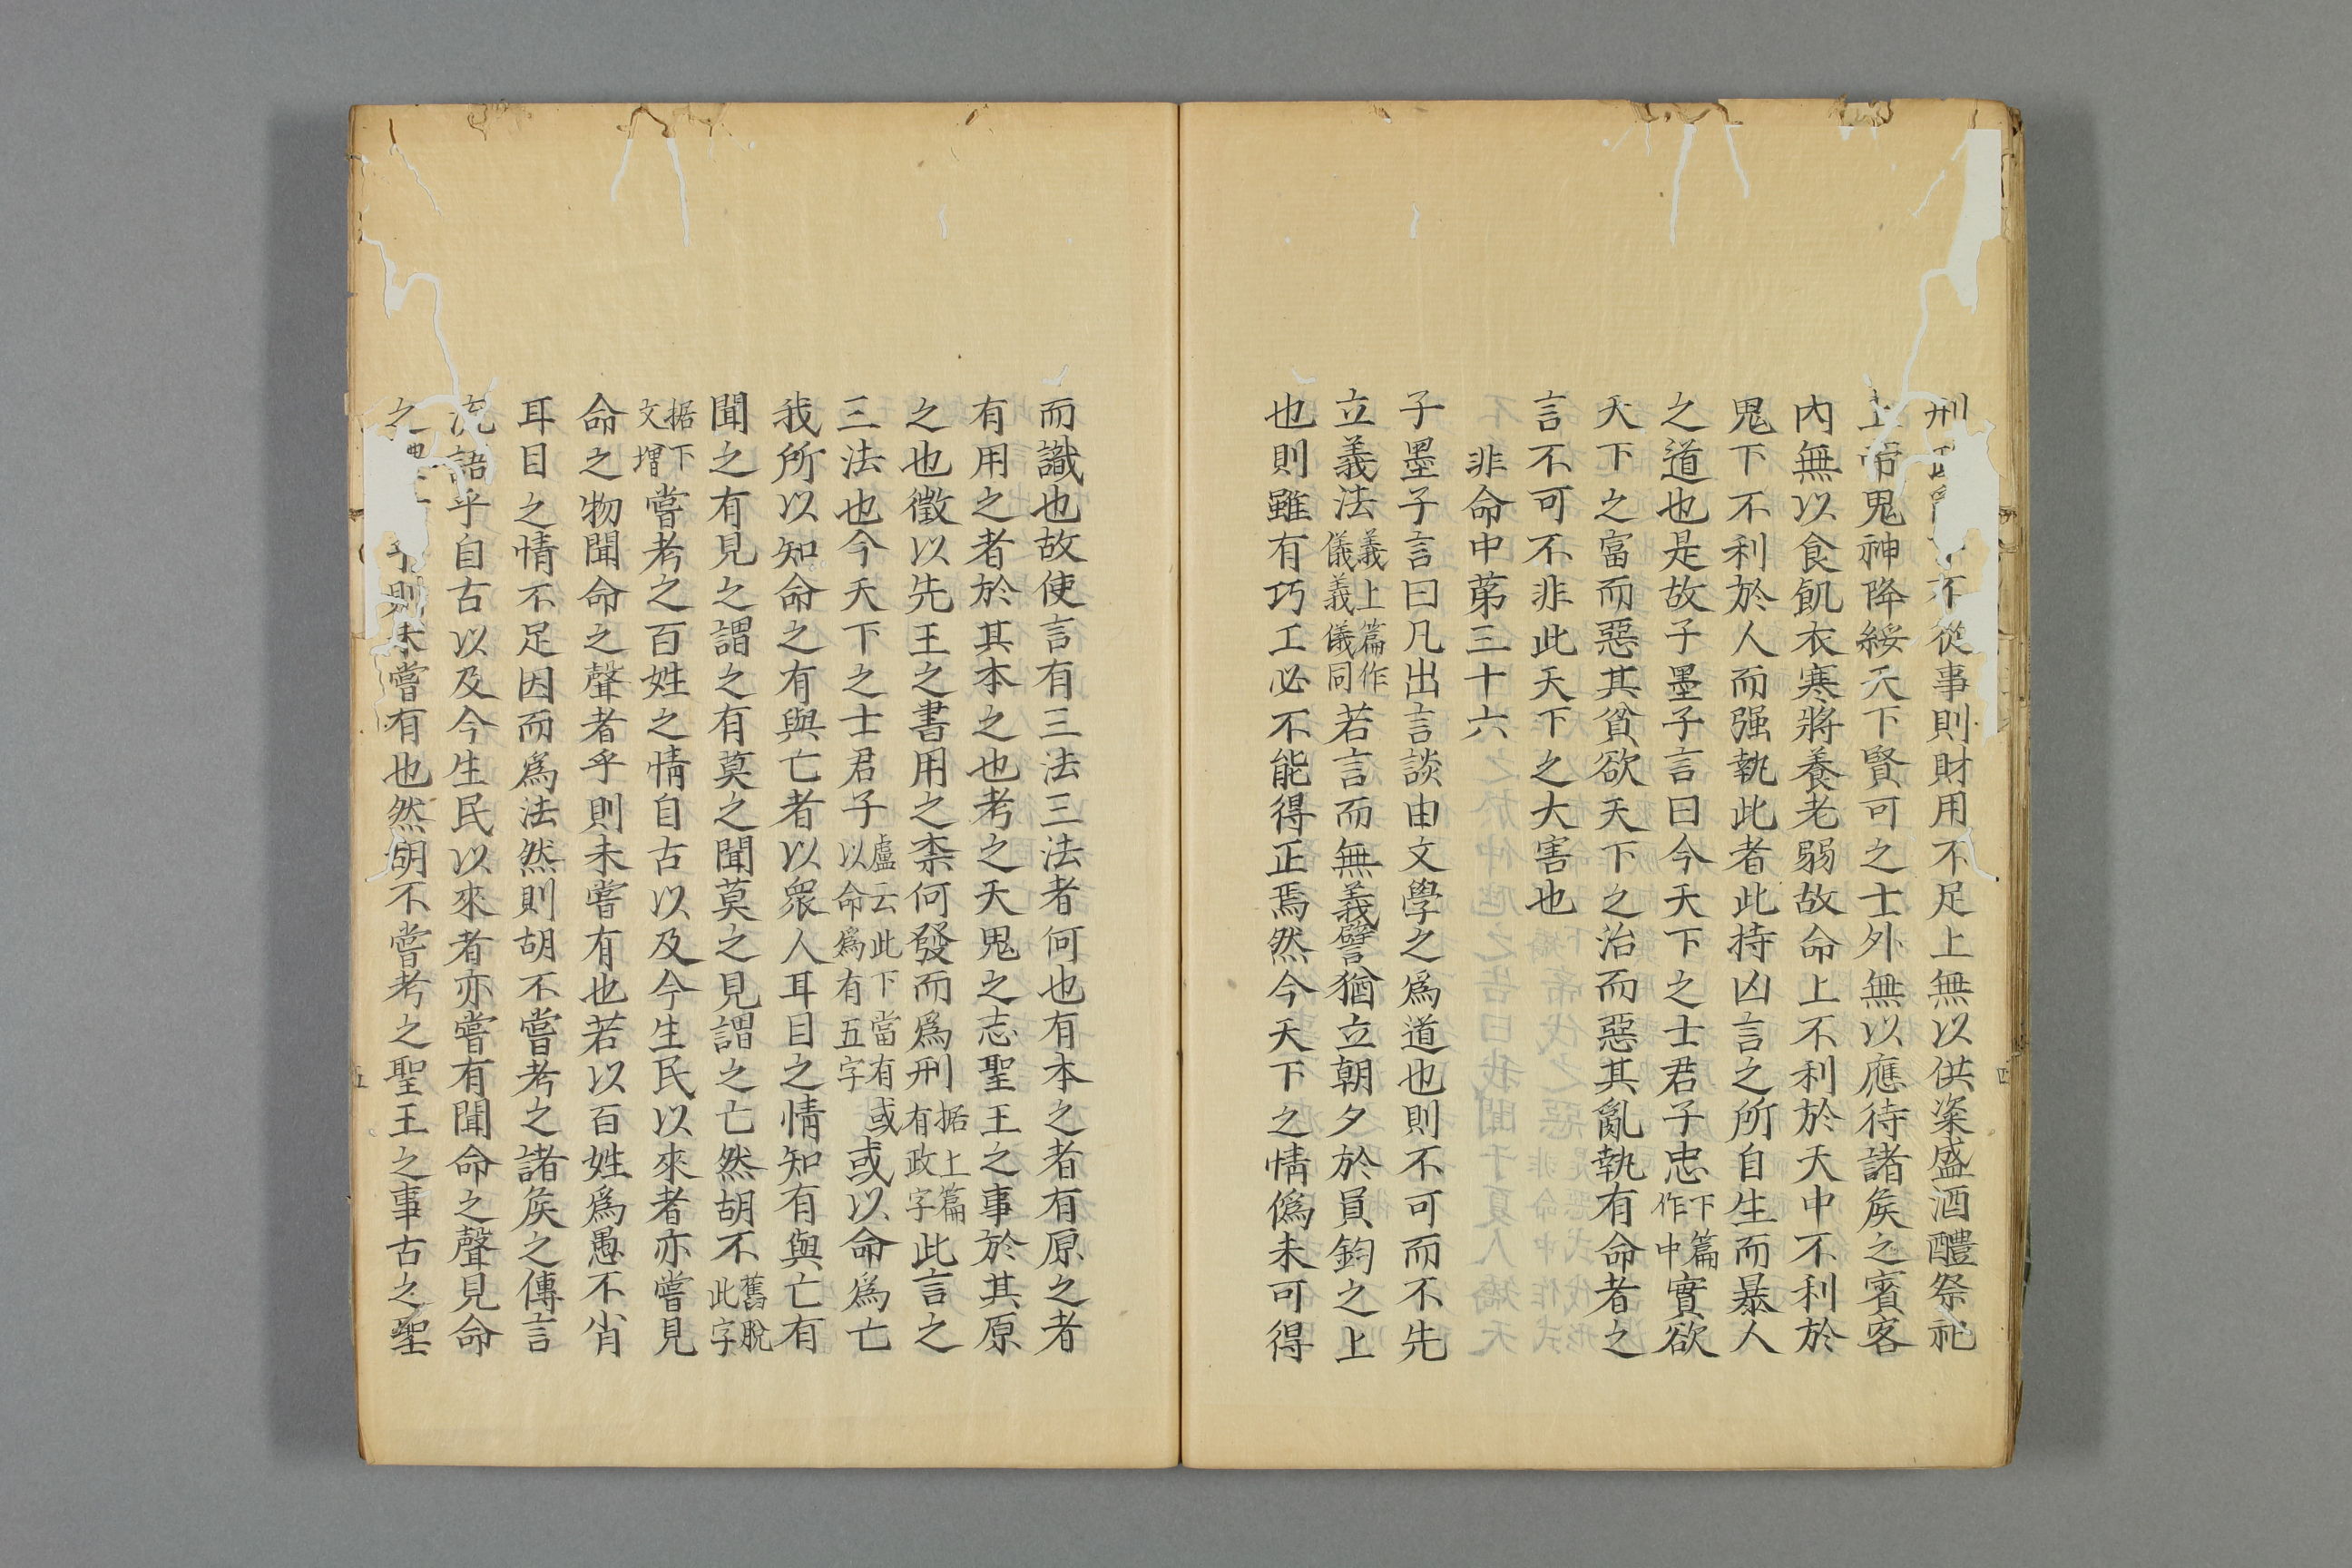 刑政不從事則財用不足上無以供粢盛酒醴祭祀
上帝鬼神降綏天下賢可之士外無以應待諸矦之賓客
內無以食飢衣寒將養老弱故命上不利於天中不利於
鬼下不利於人而强執此者此持凶言之所自生而暴人
之道也是故子墨子言曰今天下之士君子忠下篇作中實欲
天下之富而惡其貧欲天下之治而惡其亂執有命者之
言不可不非此天下之大害也
非命中苐三十六
子墨子言曰凡出言談由文學之爲道也則不可而不先
立義法義上篇作儀義儀同若言而無義譬猶立朝夕於員鈞之上
也則雖有巧工必不能得正焉然今天下之情僞未可得
而識也故使言有三法三法者何也有本之者有原之者
有用之者於其本之也考之天鬼之志聖王之事於其原
之也徵以先王之書用之柰何發而爲刑据上篇有政字此言之
三法也今天下之士君子盧云此下當有或以命爲有五字或以命爲亡
我所以知命之有與亡者以衆人耳目之情知有與亡有
聞之有見之謂之有莫之聞莫之見謂之亡然胡不舊脫此字
据下文增嘗考之百姓之情自古以及今生民以來者亦嘗見
命之物聞命之聲者乎則未嘗有也若以百姓爲愚不肖
耳目之情不足因而爲法然則胡不嘗考之諸矦之傳言
流語乎自古以及今生民以來者亦嘗有聞命之聲見命
之乎則未嘗有也然胡不嘗考之聖王之事古之聖